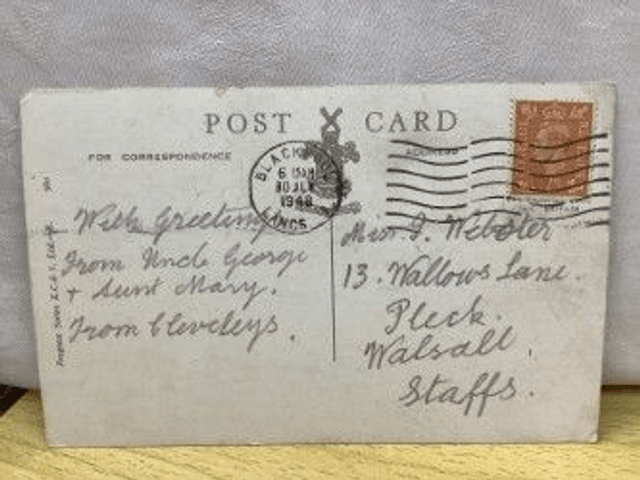 POST CARD
FOR CORRESPONDENCE
ADDRESS
BLACKPOOL
6 15AM
30 JLY
1948
LANCS
With Greetings
From Uncle George
+ Aunt Mary.
From Cleveleys.
Miss J. Webster
13. Wallows Lane.
Pleck.
Walsall.
Staffs.